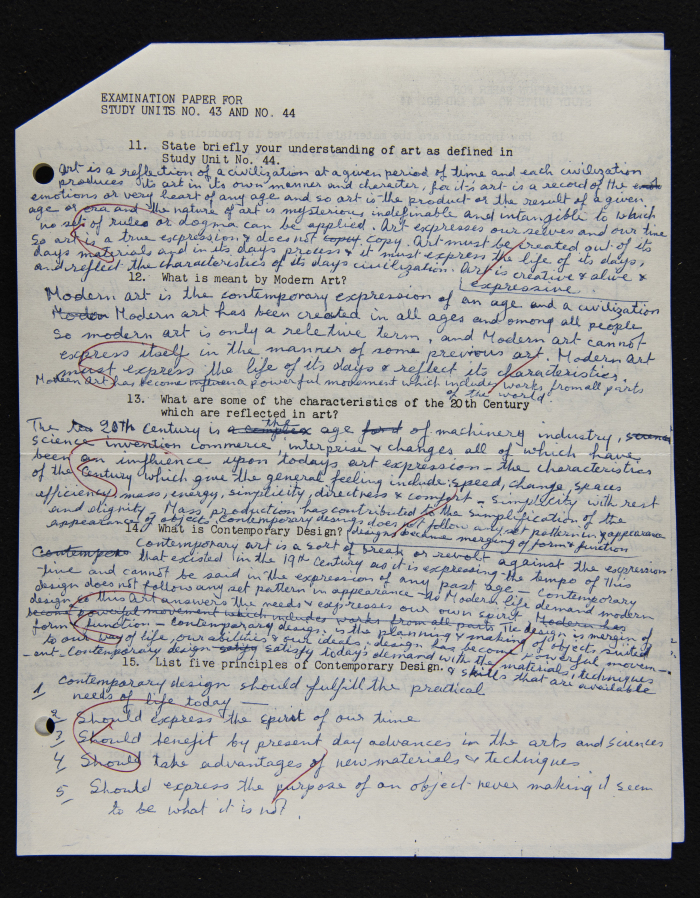 EXAMINATION PAPER FOR
STUDY UNITS NO. 43 AND NO. 44
11. State briefly your understanding of art as defined in
Study Unit No. 44.
Art is a reflection of a civilization at a given period of time and each civilization
produces its art in its own manner and character, for it's art is a record of the
emotions or very heart of any age and so art is the product or the result of a given
age or era and the nature of art is mysterious indefinable and intangible to which
no sets of rules or dogma can be applied. Art expresses our selves and our time
So art is a true expression & does not copy copy. Art must be created out of its
days materials and in its days process & it must express the life of its days,
and reflect the characteristics of its days civilization. Art is creative & alive &
expressive
12. What is meant by Modern Art?
Modern art is the contemporary expression of an age and a civilization
Modern Modern art has been created in all ages and among all people
So modern art is only a reletive term, and Modern art cannot
express itself in the manner of some previous art. Modern Art
must express the life of its days & reflect its characteristics.
Modern Art has become a powerful movement which includes works from all parts
of the world.
13. What are some of the characteristics of the 20th Century
which are reflected in art?
The 20th Century is a complex the age of machinery industry,
science invention commerce, interprise & changes all of which have
been an influence upon todays art expression - the characteristics
of the Century which give the general feeling include: speed, change, spaces
efficiency, mass, energy, simplicity, directness & comfort - Simplicity with rest
and dignity - Mass production has contributed to the simplification of the
appearance of objects, contemporary desings does not follow any set pattern in appearance
14. What is Contemporary Design? designs became merging of form & function
Contemporary art is a sort of break or revolt against the expression
that existed in the 19th Century as it is expressing the tempo of this
time and cannot be said in the expression of any past age - Contemporary
design does not follow any set pattern in appearance - As Modern life demand modern
design so this Art answers the needs & expresses our own spirit Modern has
become powerful movement which includes works from all parts The design is mergin of
form & function - Contemporary design, is the planning & making of objects suited
to our way of life, our abilities & our ideals, design has become powerful movem-
-ent - Contemporary design satisfy satisfy today's demand with the materials, techniques
& skills that are available
15. List five principles of Contemporary Design.
1 Contemporary design should fulfill the practical
needs of life today -
2 Should express the spirit of our time
3 Should benefit by present day advances in the arts and sciences
4 Should take advantages of new materials & techniques
5 Should express the purpose of an object never making it seem
to be what it is not.